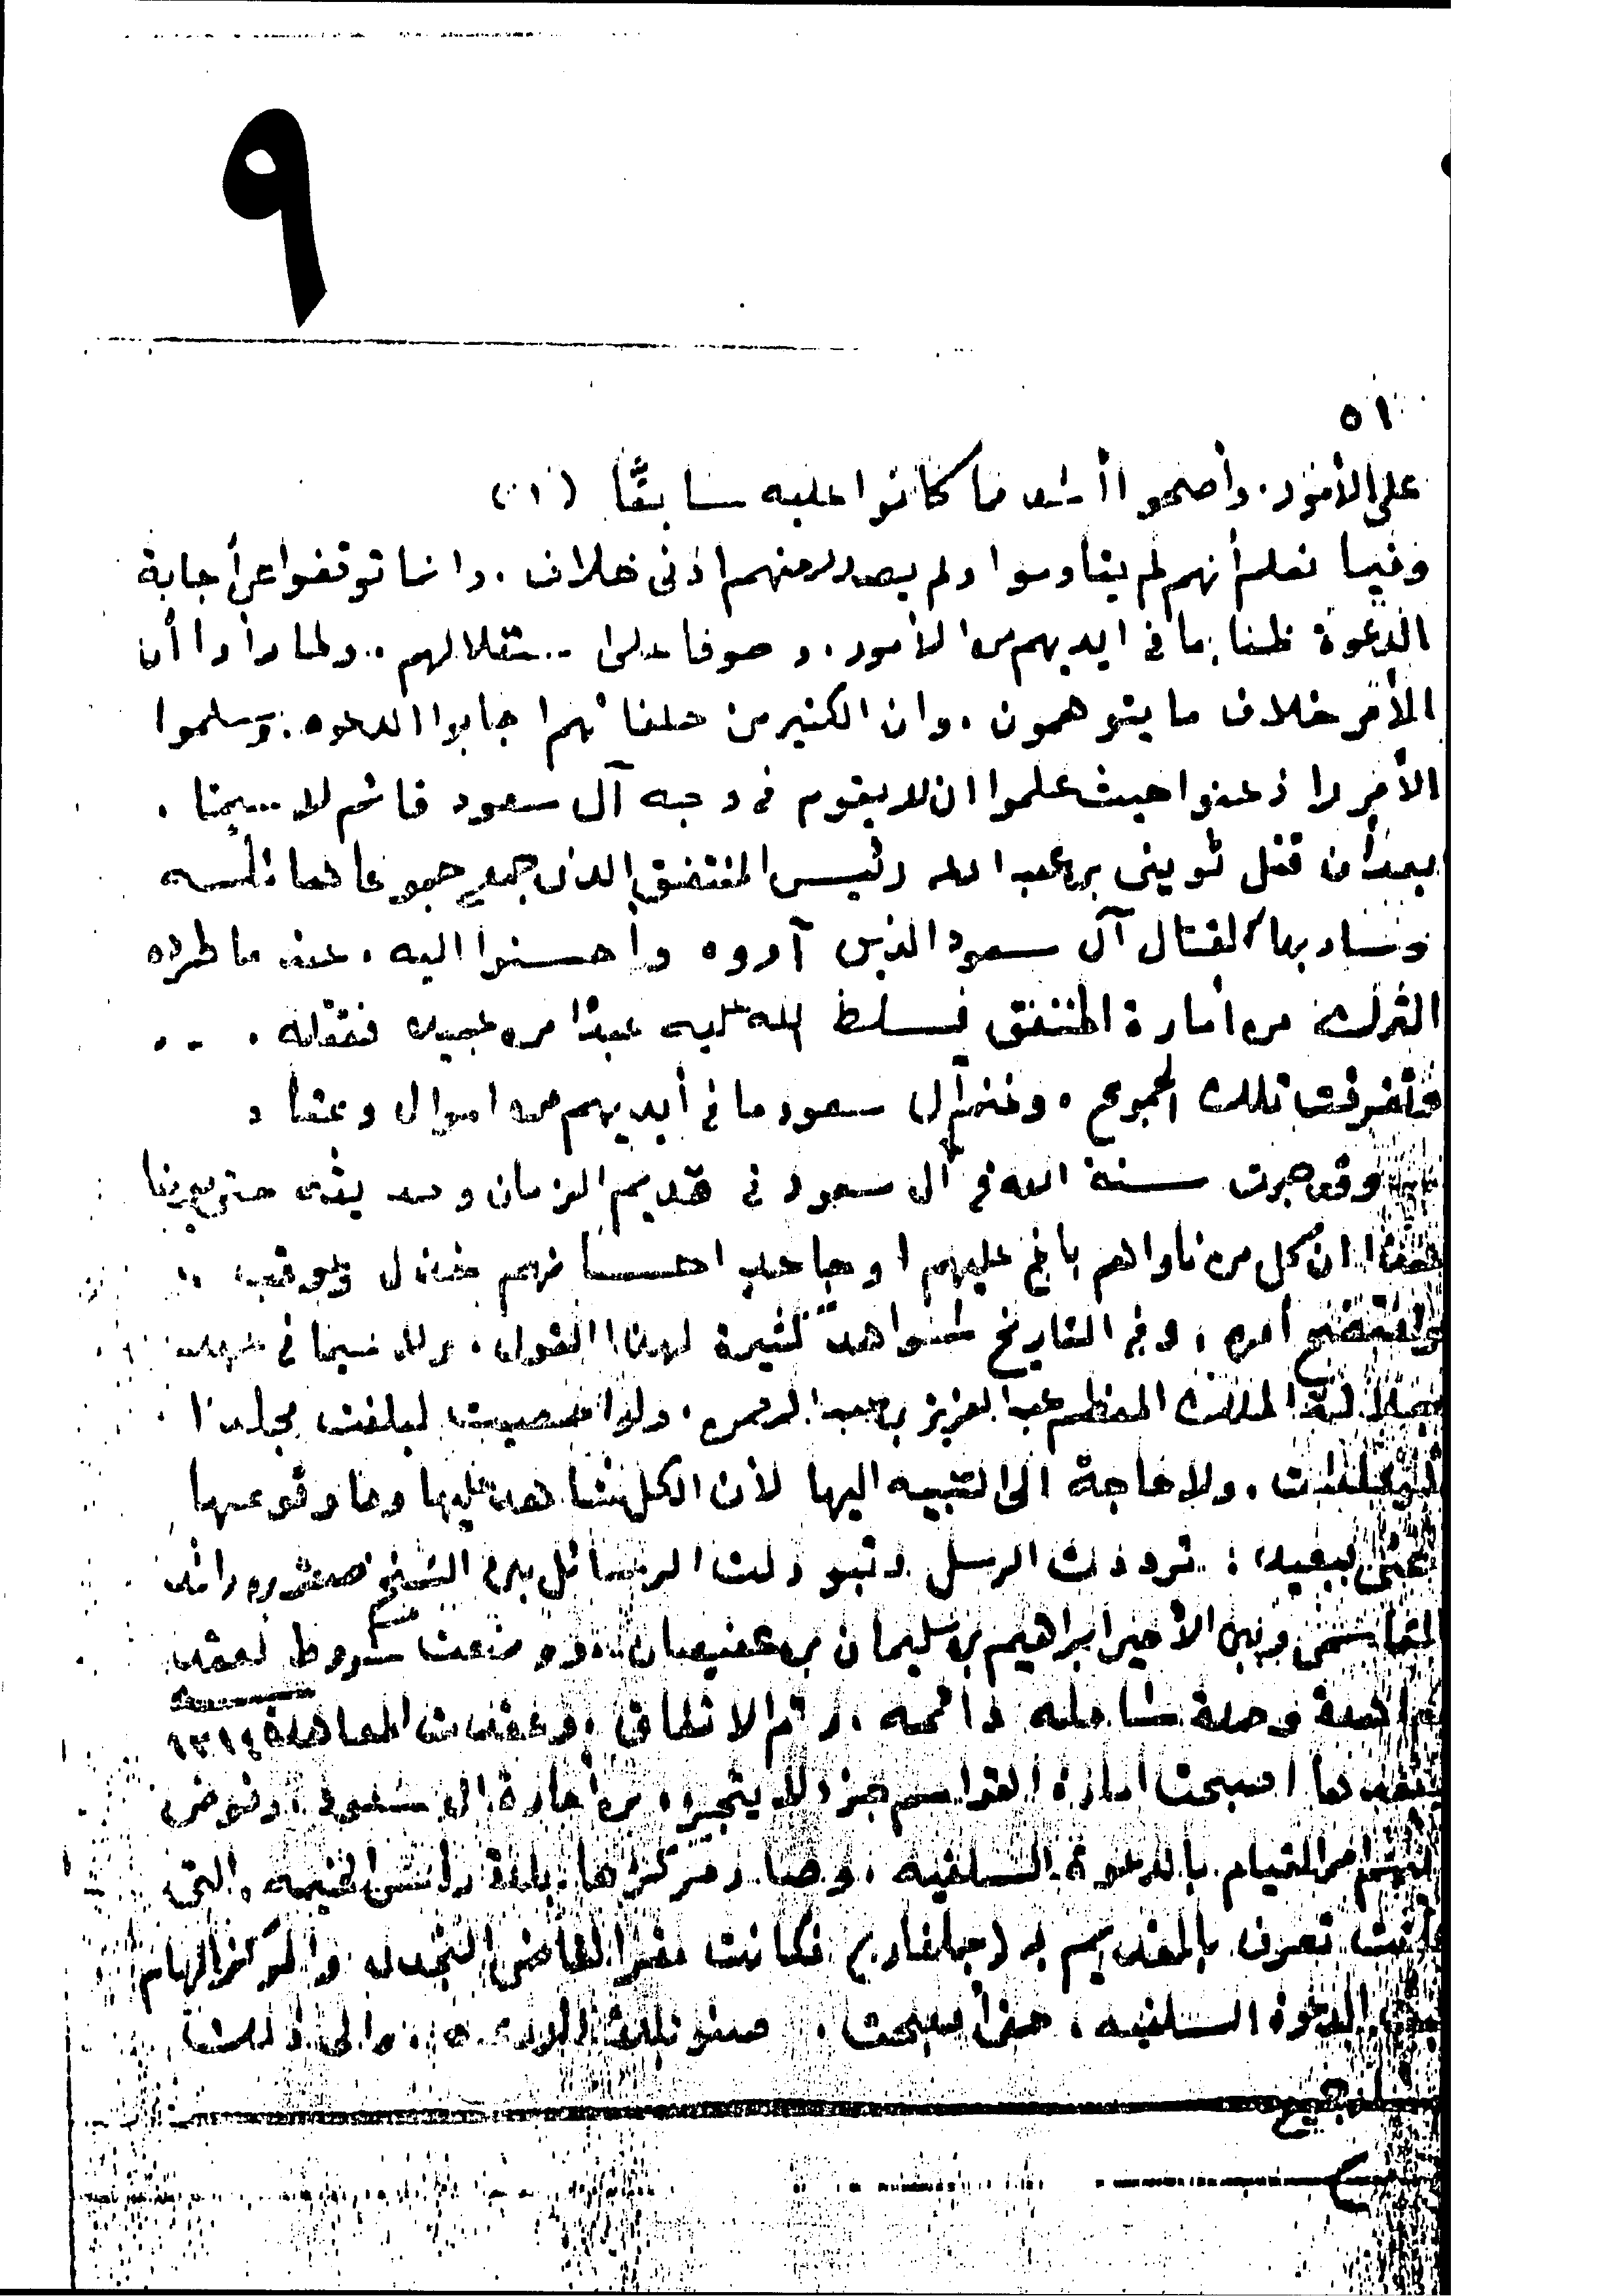 ٩
٥١
على الأمور. وأصبحوا أشد مما كانوا عليه سابقًا (١)
وفيما نعلم أنهم لم يقاوموا ولم يصدر منهم ادنى خلاف. وانما توقفوا عن أجابة
الدعوة ظنا بما في ايديهم من الأمور. وخوفا على ستقلالهم. ولما رأوا أن
الأمر خلاف ما يتوهمون. وان الكثير من حلفائهم اجابوا الدعوه. وسلموا
الأمر واذعنوا حيث علموا ان لا يقوم في وجه آل سعود قائم لا سيما.
بعد أن قتل ثويني بن عبد الله رئيس المنتفق الذي جمع جموعا هائلسه
وسار بها لقتال آل سعود الذين آووه وأحسنوا اليه. عند ما طرده
الترك من أمارة المنتفق فسلط الله عليه عبدًا من عبيده فقتله. . .
فتفرقت تلك الجموع. وغنم آل سعود ما في أيديهم من اموال وعتاد
وقد جرت سنة الله في آل سعود في قديم الزمان وحديثه حتى يومنا
هذا ان كل من ناواهم باغ عليهم او جاحد احسانهم خذل وعوقب ..
وافتضح أمره، وفي التاريخ شواهد كثيرة لهذا القول، ولا سيما في عهد
جلالة الملك المعظم عبد العزيز بن عبد الرحمن. ولو احصيت لبلغت مجلدا
أو مجلدات. ولا حاجة الى التنبيه اليها لأن الكل شاهد عليها وما وقوعها
عنى ببعيد: ترددت الرسل وتبودلت الرسائل بين الشيخ صقر بن راشد
القاسمي وبين الأمير ابراهيم بن سليمان بن عفيصان. ووضعت شروط لعقد
معاهدة وحدة شامله دائمه. وتم الاتفاق. وعقدت المعاهدة ١٢١٤
بعدها اصبحت امارة القواسم جزء لا يتجزء من أمارة ال سعود. وفوض
القواسم القيام بالدعوة السلفيه. وصار مركزها بلدة راس الخيمه. التي
كانت تعرف بالقديم بـ (جلفار) فكانت مقرا لقاضي النجدي والمركز الهام
الدعوة السلفيه، حتى أصبحت. والى ذلك